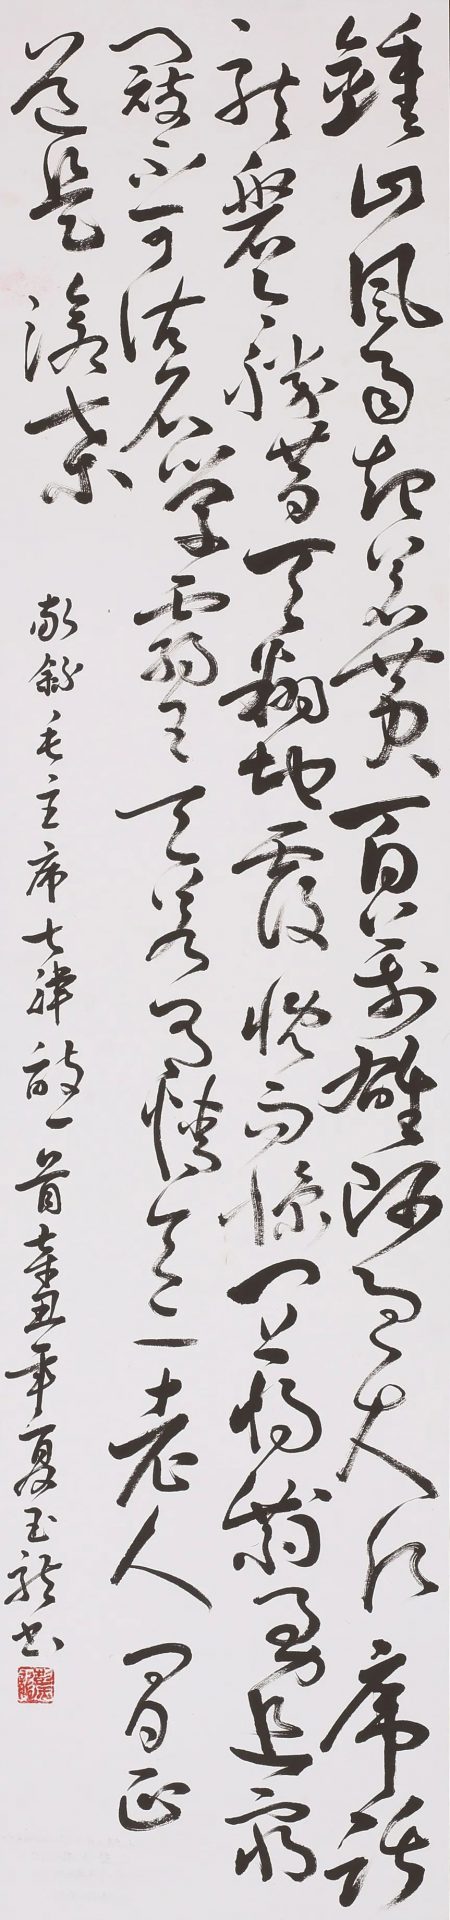 鍾山風雨起蒼黃百萬雄師過大江虎踞
龍磐今勝昔天翻地覆慨而慷宜將剩勇追窮
寇不可沽名学霸王天若有情天亦老人間正
道是滄桑 敬錄毛主席七律詩一首辛丑年夏玉龍書